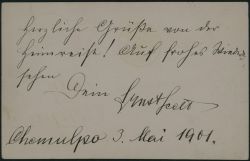 Herzliche Grüße von der
Heimreise! Auf frohes Wieder-
sehen
Dein Ernst
Chemulpo 3. Mai 1901.